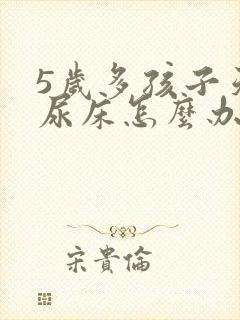 5歲多孩子
尿床怎麼办
宋貴倫